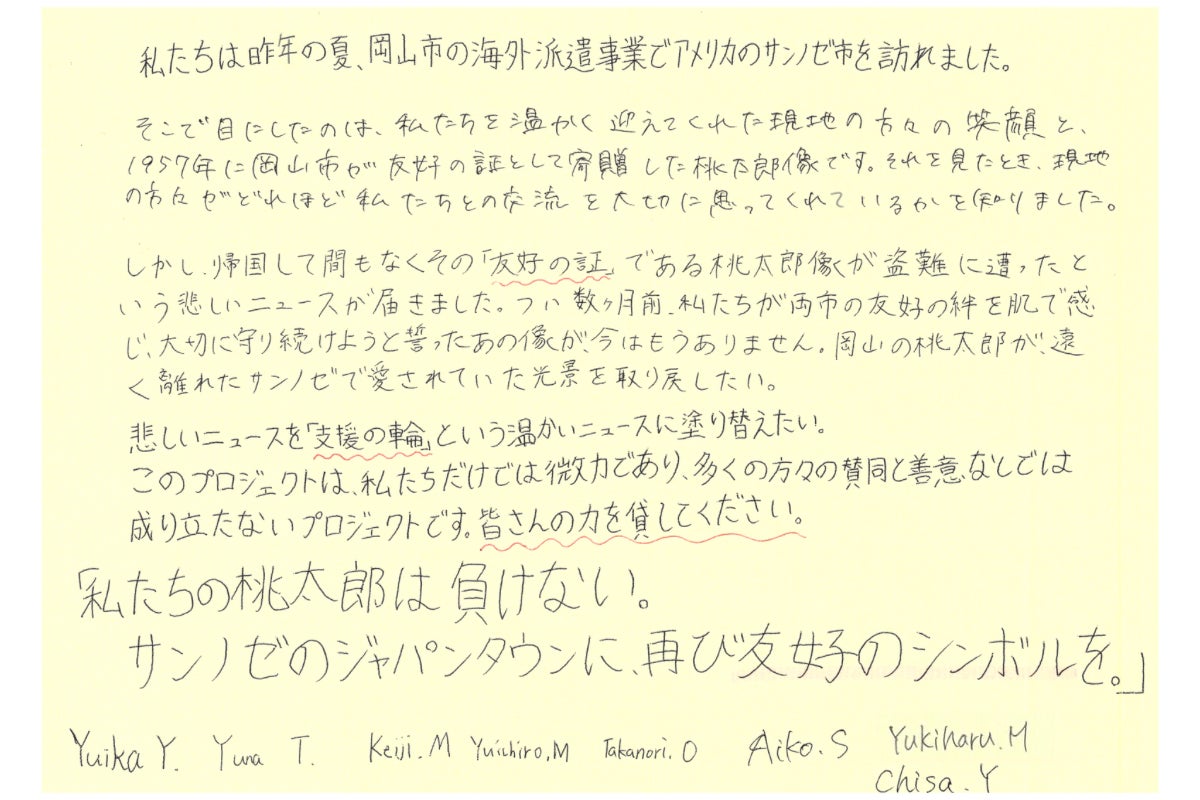 私たちは昨年の夏、岡山市の海外派遣事業でアメリカのサンノゼ市を訪れました。
そこで目にしたのは、私たちを温かく迎えてくれた現地の方々の笑顔と、
1957年に岡山市が友好の証として寄贈した桃太郎像です。それを見たとき、現地
の方々がどれほど私たちとの交流を大切に思ってくれているかを知りました。
しかし、帰国して間もなくその「友好の証」である桃太郎像が盗難に遭ったと
いう悲しいニュースが届きました。つい数ヶ月前、私たちが両市の友好の絆を肌で感
じ、大切に守り続けようと誓ったあの像が、今はもうありません。岡山の桃太郎が、遠
く離れたサンノゼで愛されていた光景を取り戻したい。
悲しいニュースを「支援の輪」という温かいニュースに塗り替えたい。
このプロジェクトは、私たちだけでは微力であり、多くの方々の賛同と善意なしでは
成り立たないプロジェクトです。皆さんの力を貸してください。
「私たちの桃太郎は負けない。
サンノゼのジャパンタウンに、再び友好のシンボルを。」
Yuika Y. Yuna T. Keiji.M Yuichiro.M Takanori.O Aiko.S Yukiharu.M
Chisa.Y